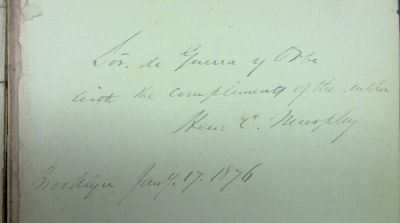 Sór. de Guerra y Orbe
with the compliments of the author
Hen: C. Murphy
Brooklyn Jany. 17. 1876